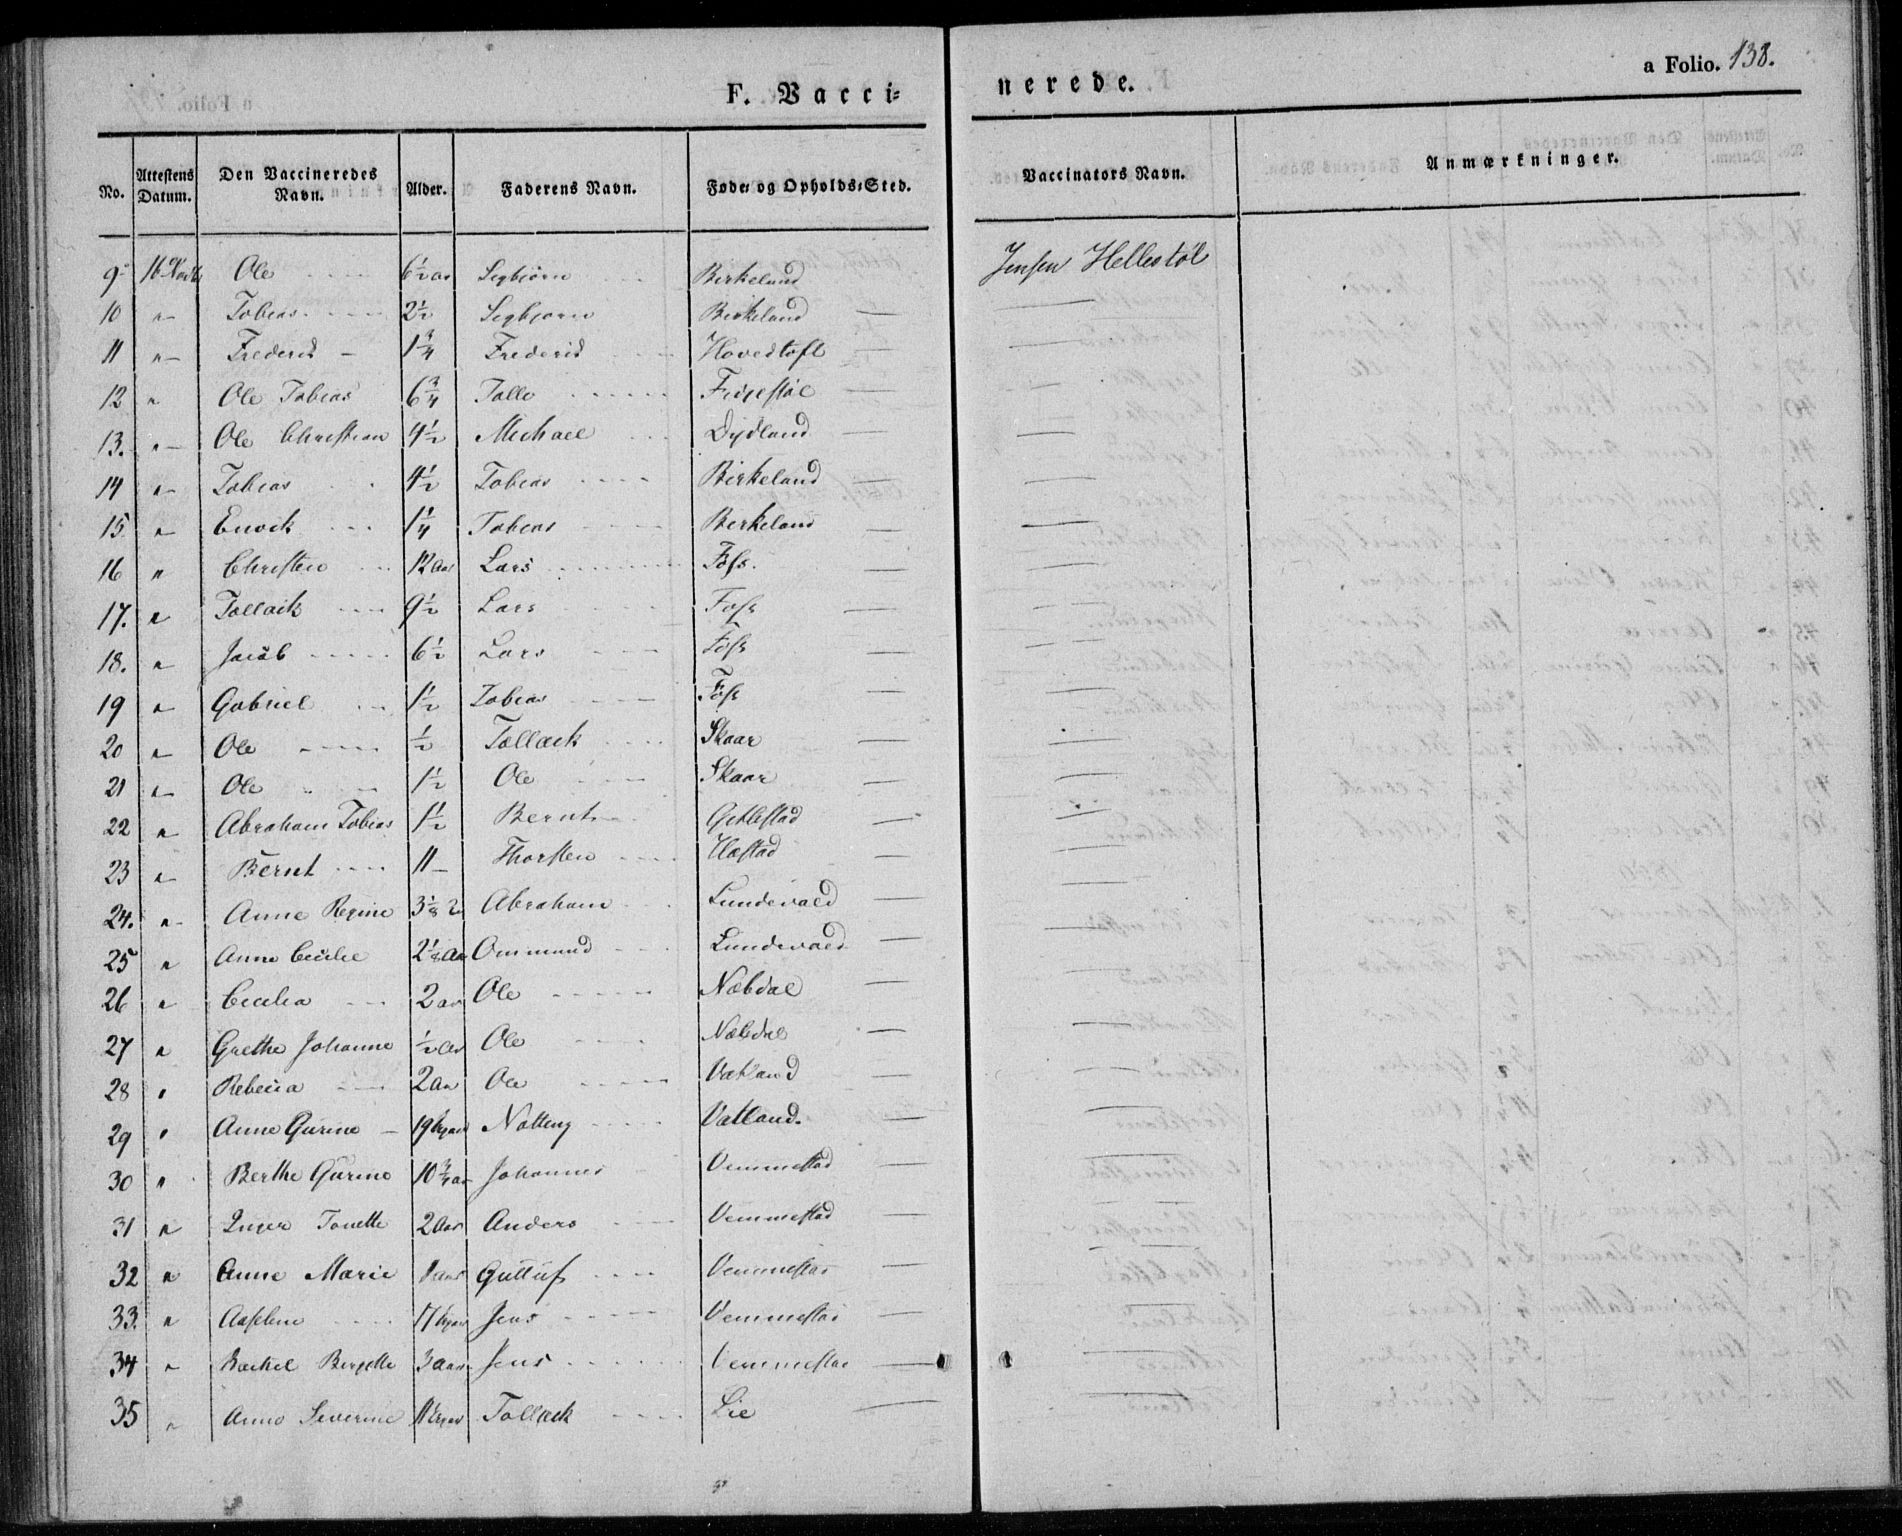 a Folio. 138.
F. Vacci=
nerede.
No. Attestens Datum. Den Vaccineredes Navn. Alder. Faderens Navn. Føde= og Opholds=Sted. Vaccinators Navn. Anmærkninger.
9 16 Ole 6½ aar Birkeland Jensen Hellestöl
10 " Tobias 2½ Birkeland
11 " 1¾ Hovedtoft
12 " Ole Tobias 6¾ Tolle
13. " Ole Christian 4½ Michael Dydland
14 " Tobias 4½ Tobias Birkeland
15 " Enock 1¼ Tobias Birkeland
16 " Christen 12 aar Lars Foss.
17. " Tollack 9½ Lars Foss
18. " Jacob 6½ Lars Foss
19 " Gabriel 1½ Tobias Foss
20 " Ole ½ Tollack Skaar
21 " Ole 1½ Ole Skaar
22 " Abraham Tobias 1½ Bernt
23 " Bernt 11 Thorsten
24. " Anne Regine Abraham Lundevold
25 " Anne Cecilie Ommund Lundevold
26 " Cecilia 2 aar Ole Næbdal
27 " Grethe Johanne ½ aar Ole Næbdal
28 " Rebecca 2 aar Ole Vatland
29 " Anne Gurine 19 Vatland.
30 " Berthe Gurine 10¾ aar Johannes Vemmestad
31 " Inger Tonette 2 aar Anders Vemmestad
32 " Anne Marie Vemmestad
33. " 17 Jens Vemmestad
34 " Rachel 3 aar Jens Vemmestad
35 " Anne Severine 11 Tollack Lie